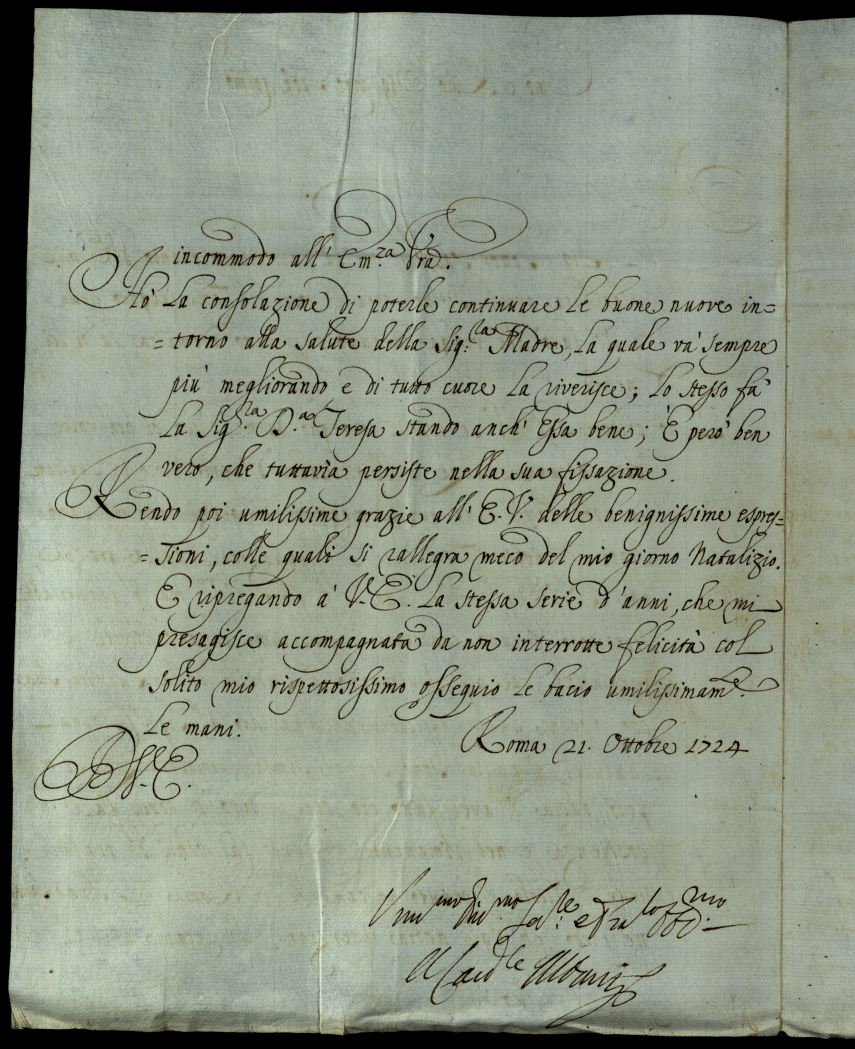 incommodo all' Em.za Vrã.
Hò La consolazione di poterle continuare Le buone nuove in=
=torno alla salute della Sig.ra Madre, La quale và sempre
più megliorando e di tutto cuore La riverisce; Lo stesso fà
La Sig.ra D.a Teresa stando anch' Essa bene; È però ben
vero, che tuttavia persiste nella sua fissazione.
Rendo poi umilissime grazie all' E. V. delle benignissime espres=
=sioni, colle quali si rallegra meco del mio giorno Natalizio.
E ripregando à V. E. La stessa serie d'anni, che mi
presagisce accompagnata da non interrotte felicità col
solito mio rispettosissimo ossequio Le bacio umilissimam.te
Le mani.
Roma 21. Ottobre 1724
D. V. E.
Um.mo Div.mo Se.re e Fra.lo Obb.mo
A Card.le Albani